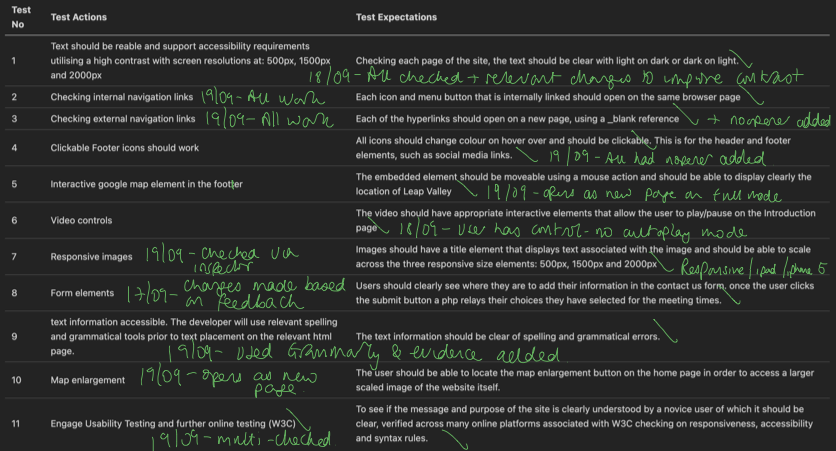 Test No Test Actions Test Expectations
1 Text should be reable and support accessibility requirements
utilising a high contrast with screen resolutions at: 500px, 1500px
and 2000px
Checking each page of the site, the text should be clear with light on dark or dark on light.
18/09 - All checked + relevant changes to improve contrast
2 Checking internal navigation links 19/09 - All work
Each icon and menu button that is internally linked should open on the same browser page
3 Checking external navigation links 19/09 - All work
Each of the hyperlinks should open on a new page, using a _blank reference + noopener added
4 Clickable Footer icons should work
All icons should change colour on hover over and should be clickable. This is for the header and footer
elements, such as social media links. 19/09 - All had noopener added
5 Interactive google map element in the footer
The embedded element should be moveable using a mouse action and should be able to display clearly the
location of Leap Valley 19/09 - opens as new page on full mode
6 Video controls
The video should have appropriate interactive elements that allow the user to play/pause on the Introduction
page 18/09 - User has control - no autoplay mode
7 Responsive images 19/09 - checked via
inspector
Images should have a title element that displays text associated with the image and should be able to scale
across the three responsive size elements: 500px, 1500px and 2000px Responsive/ipad/iphone 5
8 Form elements 17/09 - changes made based
on feedback
Users should clearly see where they are to add their information in the contact us form. once the user clicks
the submit button a php relays their choices they have selected for the meeting times.
9 text information accessible. The developer will use relevant spelling
and grammatical tools prior to text placement on the relevant html
page.
The text information should be clear of spelling and grammatical errors.
19/09 - Used Grammarly & evidence added
10 Map enlargement 19/09 - opens as new
page.
The user should be able to locate the map enlargement button on the home page in order to access a larger
scaled image of the website itself.
11 Engage Usability Testing and further online testing (W3C)
19/09 - multi-checked
To see if the message and purpose of the site is clearly understood by a novice user of which it should be
clear, verified across many online platforms associated with W3C checking on responsiveness, accessibility
and syntax rules.